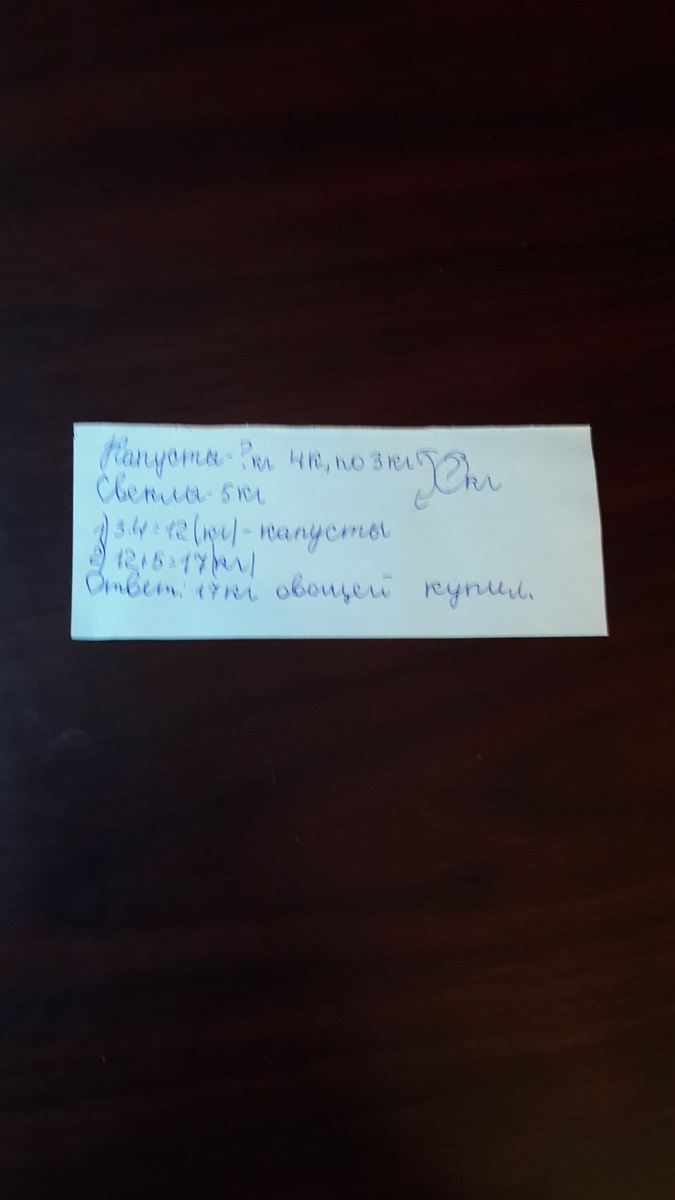 Капусты - ? кг 4к, по 3 кг ? кг
Свеклы - 5 кг
1) 3·4=12 (кг) - капусты
2) 12+5=17 (кг)
Ответ: 17 кг овощей купил.